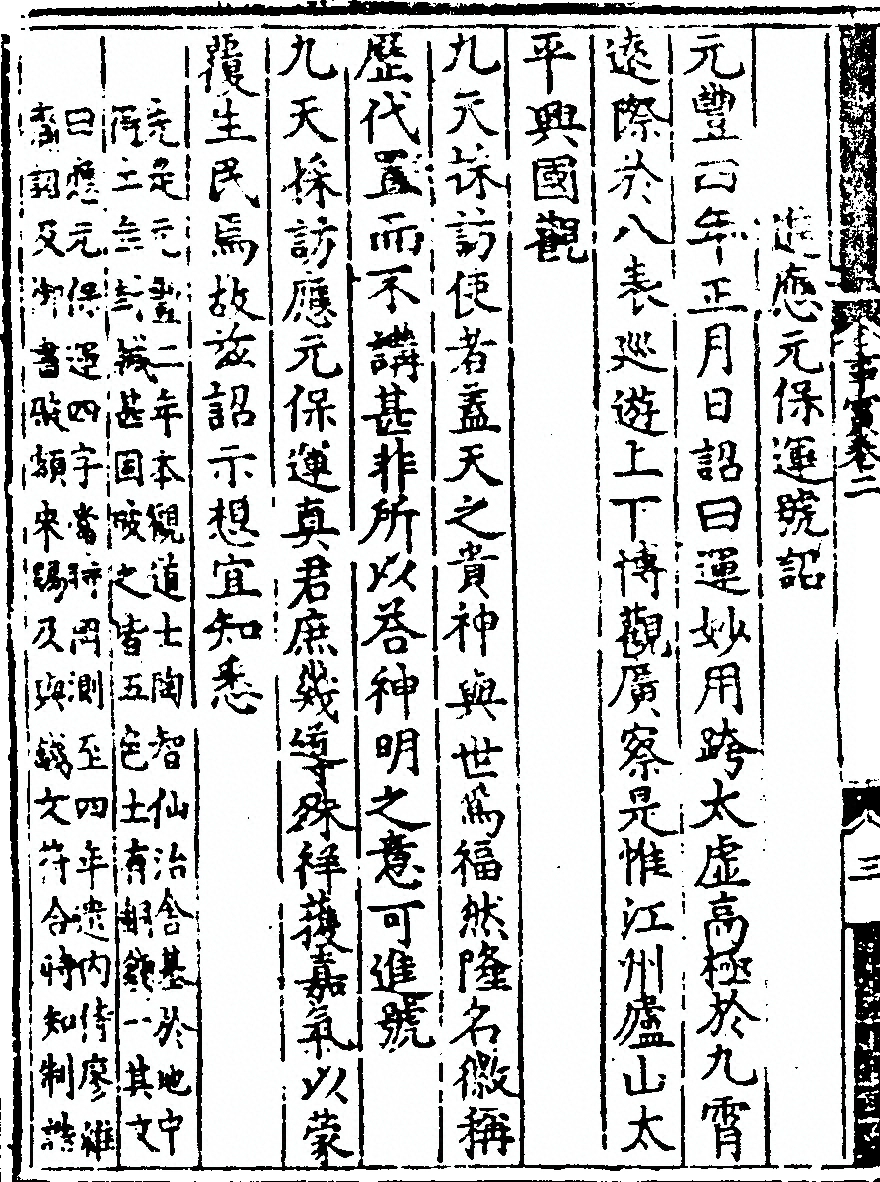 事實卷二
三
進應元保運號詔
元豐四年正月日詔曰運妙用跨太虛高極於九霄
遠際於八表巡遊上下博觀廣察是惟江州廬山太
平興國觀
九天採訪使者蓋天之貴神與世為福然隆名徽稱
歷代置而不講甚非所以荅神明之意可進號
九天採訪應元保運真君庶幾導殊祥䕶嘉氣以蒙
覆生民焉故茲詔示想宜知悉
先是元豐二年本觀道士陶智仙治舍基於地中
得土缶封緘甚固破之皆五色土有銅錢一其文
曰應元保運四字當時罔測至四年遣內侍廖維
齎詞及御書殿額來賜及與錢文符合時知制誥